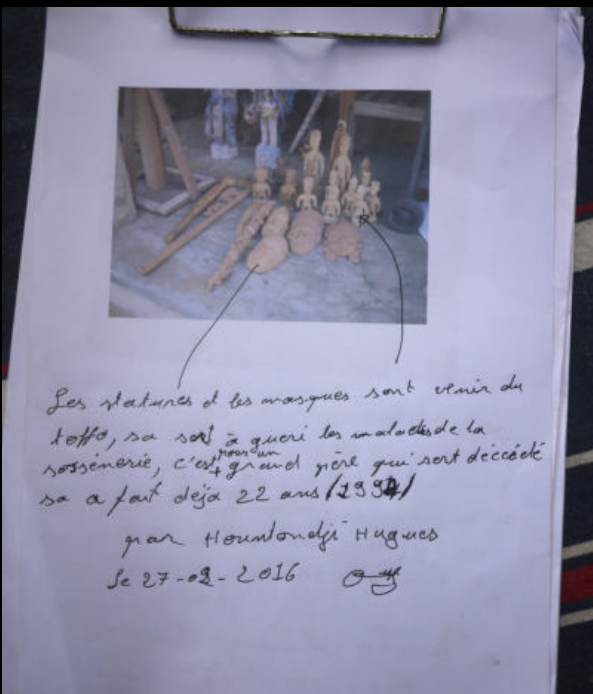 Les statures et les masques sont venir du
toffo, sa sert à gueri les malades de la
sorssènerie, c'est pour un grand père qui sert deccédé
sa a fait déjà 22 ans /1994/
par Hountondji Hugues
le 27-02-2016